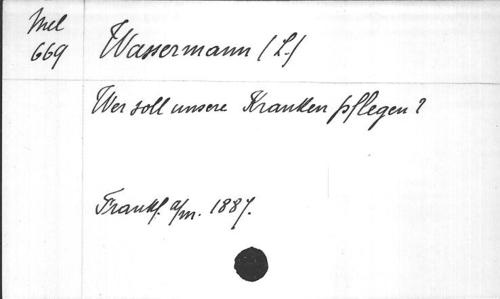 Mel
669
Wassermann (L.)
Wer soll unsere Kranken pflegen?
Frankf. a/m. 1887.